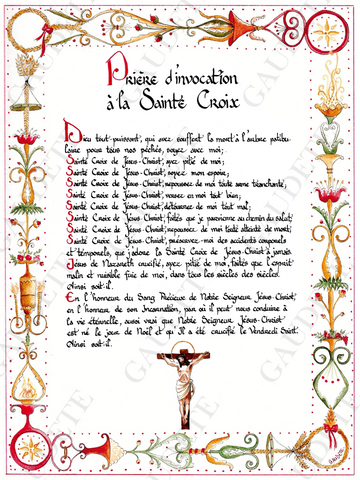 Prière d'invocation
à la Sainte Croix
Dieu tout-puissant, qui avez souffert la mort à l'arbre patibu-
laire pour tous nos péchés, soyez avec moi;
Sainte Croix de Jésus-Christ, ayez pitié de moi;
Sainte Croix de Jésus-Christ, soyez mon espoir;
Sainte Croix de Jésus-Christ, repoussez de moi toute arme tranchante;
Sainte Croix de Jésus-Christ, versez en moi tout bien;
Sainte Croix de Jésus-Christ, détournez de moi tout mal;
Sainte Croix de Jésus-Christ, faites que je parvienne au chemin du salut;
Sainte Croix de Jésus-Christ, repoussez de moi toute atteinte de mort;
Sainte Croix de Jésus-Christ, préservez-moi des accidents corporels
et temporels, que j'adore la Sainte Croix de Jésus-Christ à jamais.
Jésus de Nazareth crucifié, ayez pitié de moi, faites que l'esprit
malin et nuisible fuie de moi, dans tous les siècles des siècles!
Ainsi soit-il.
En l'honneur du Sang Précieux de Notre Seigneur Jésus-Christ,
en l'honneur de son Incarnation, par où il peut nous conduire à
la vie éternelle, aussi vrai que Notre Seigneur Jésus-Christ
est né le jour de Noël et qu'Il a été crucifié le Vendredi Saint.
Ainsi soit-il.
GAUDETE